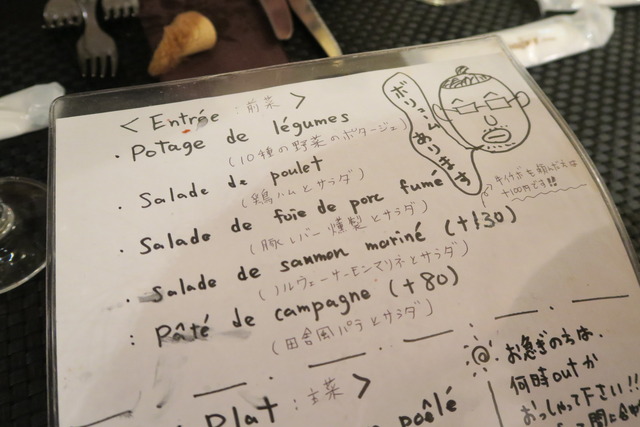 < Entrée : 前菜 >
・Potage de légumes
(10種の野菜のポタージュ)
・Salade de poulet
(鶏ハムとサラダ)
・Salade de foie de porc fumé
(豚レバー燻製とサラダ)
・Salade de saumon mariné (+130)
(ノルウェーサーモンマリネとサラダ)
・Pâté de campagne (+80)
(田舎風パテとサラダ)
ボリュームあります
+100円です!!
Plat : 主菜 >
poêlé
お急ぎの方は、
何時outか
おっしゃって下さい!!